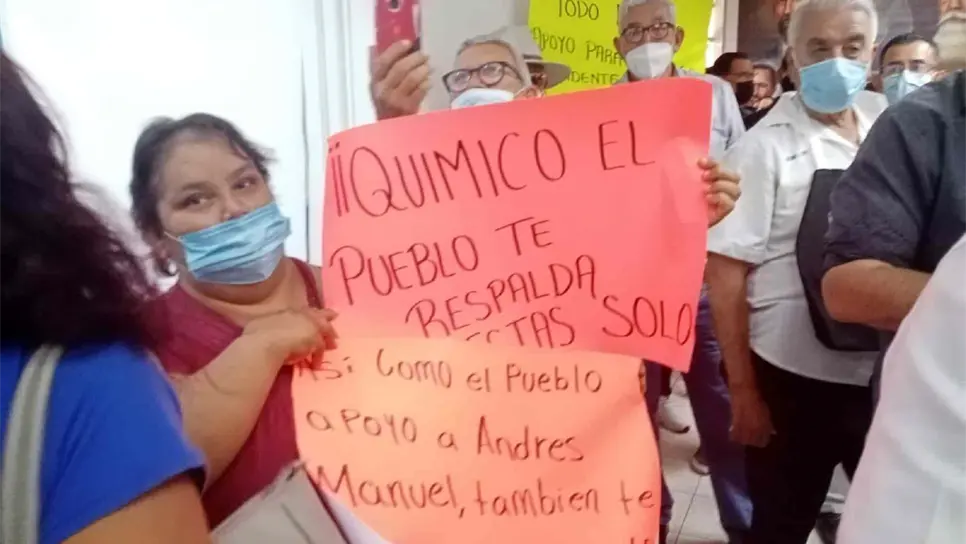 TODO
APOYO PARA
¡¡QUIMICO EL
PUEBLO TE
RESPALDA
SOLO
Así Como el Pueblo
apoyo a Andres
Manuel, tambien te